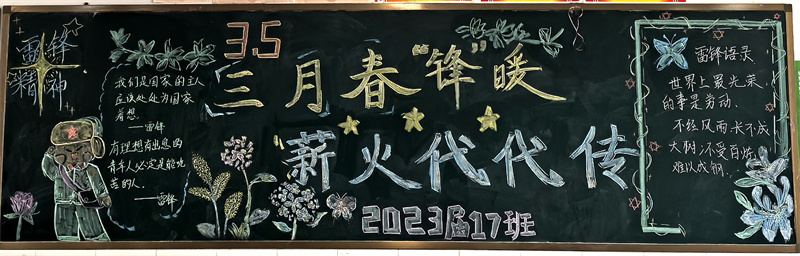 雷锋
精神
我们是国家的主人
应该处处为国家
着想。
——雷锋
有理想有出息的
青年人必定是能吃
苦的人.
——雷锋
3.5
三月春“锋”暖
薪火代代传
2023届17班
雷锋语录
世界上最光荣
的事是劳动.
不经风雨,长不成
大树;不受百炼,
难以成钢.